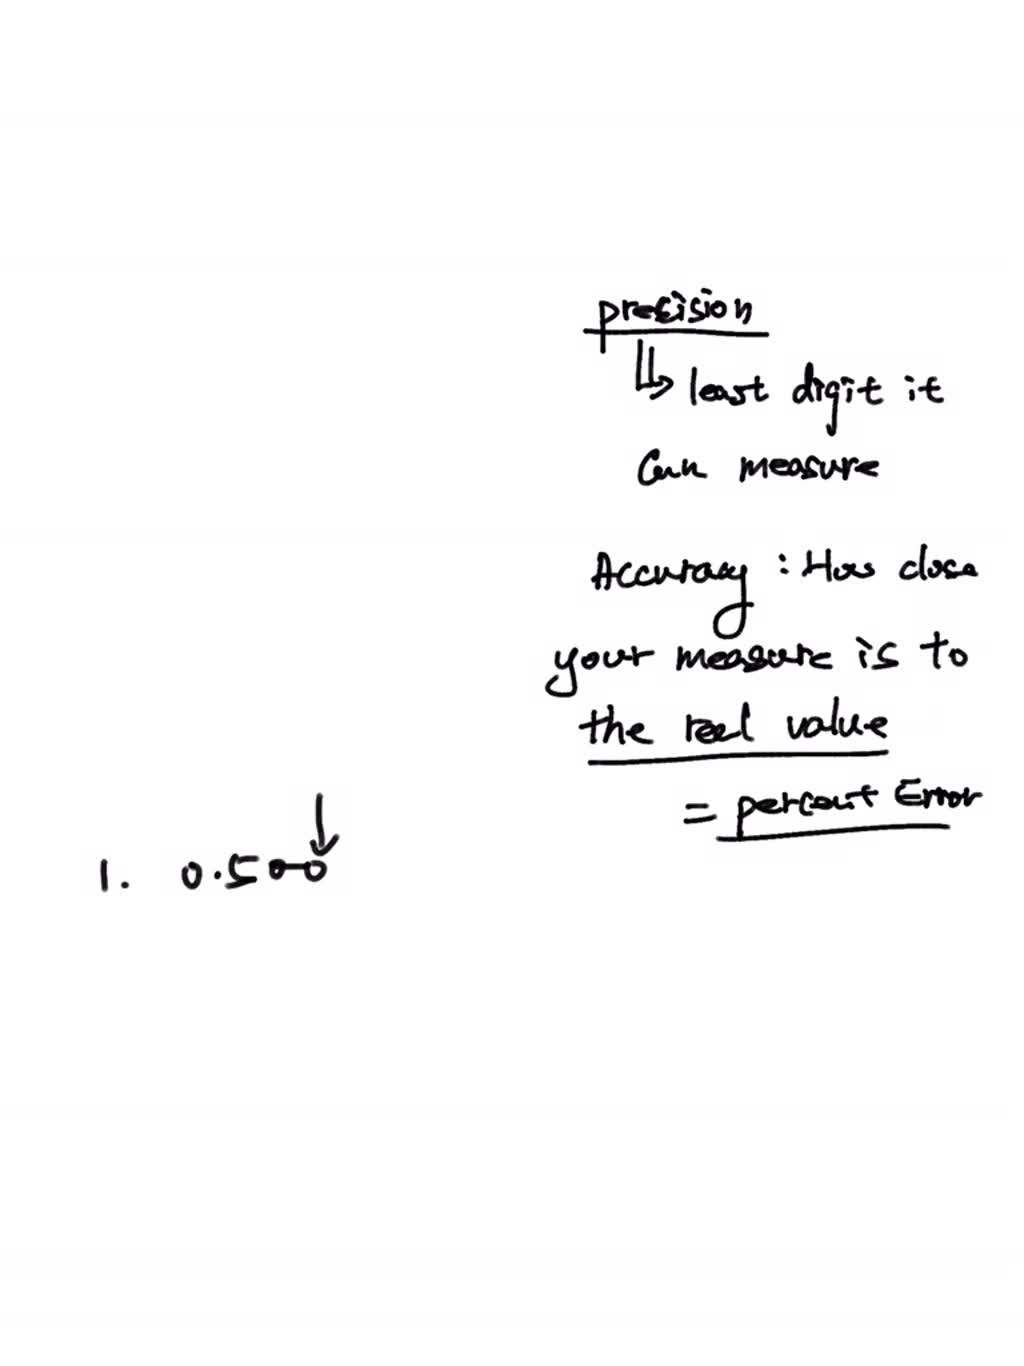 precision
least digit it
can measure
Accuracy : How close
your measure is to
the real value
= percent Error
1. 0.500